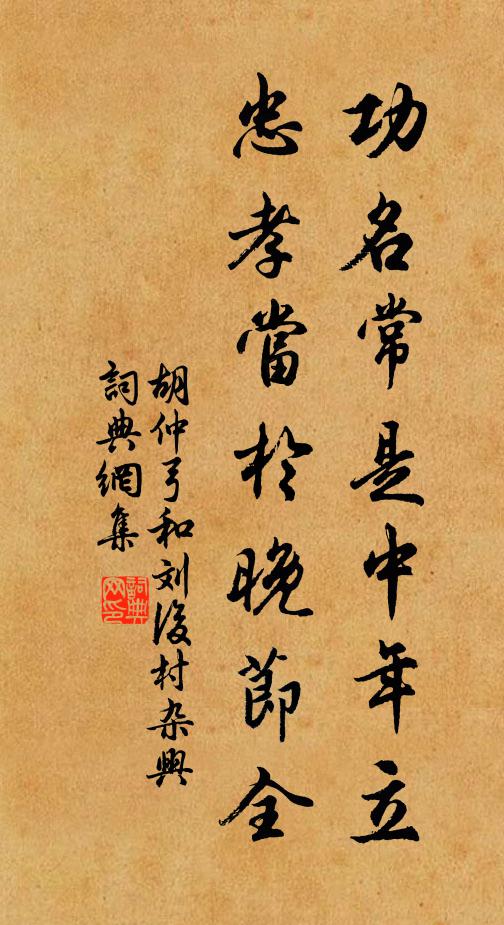 功名常是中年立
忠孝當於晚節全
胡仲弓和刘後村杂興
詞典網集
詞典网印